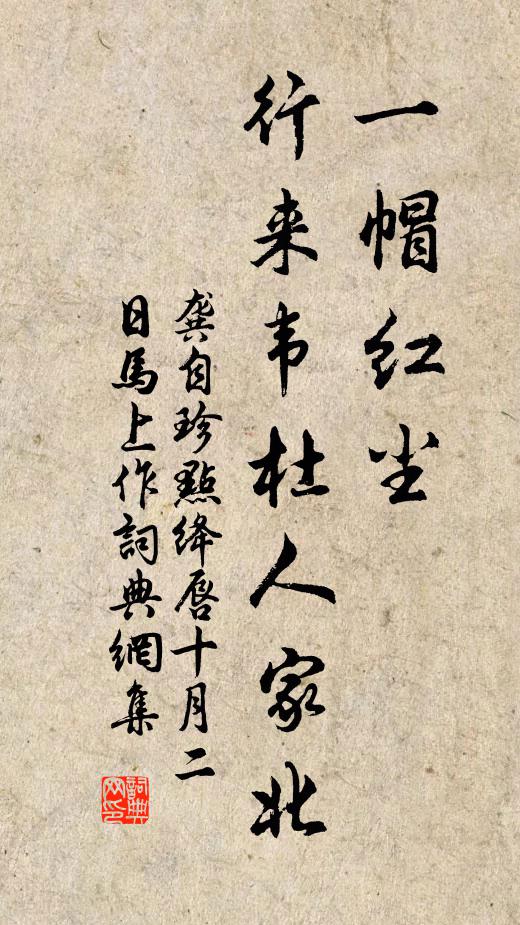 一帽红尘
行来韦杜人家北
龚自珍點绛唇十月二
日馬上作詞典網集
詞典网印